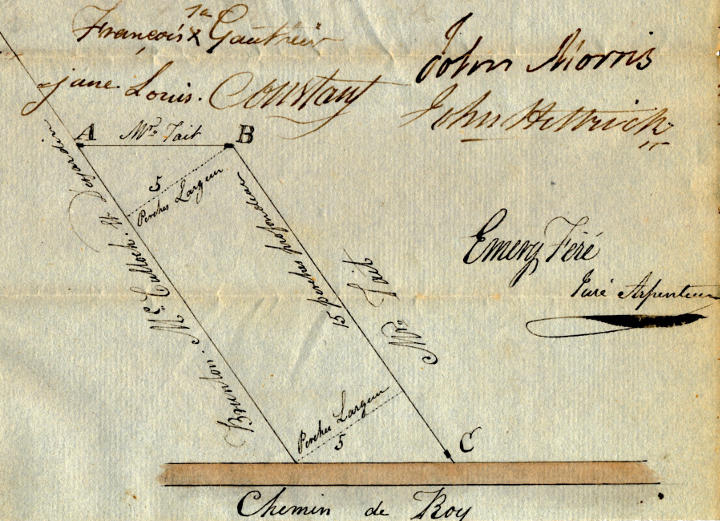 sa
François X Gauthier
jane Louis. Constant
John Morris
John Hettrick
A
Mr. Tait
B
5
Perches Largeur
Mc. Culloch. Mr. Desjardin
15 perches profondeur
Mr. Tait
Emery Féré
Juré Arpenteur
Perches Largeur
5
C
Chemin de Roy